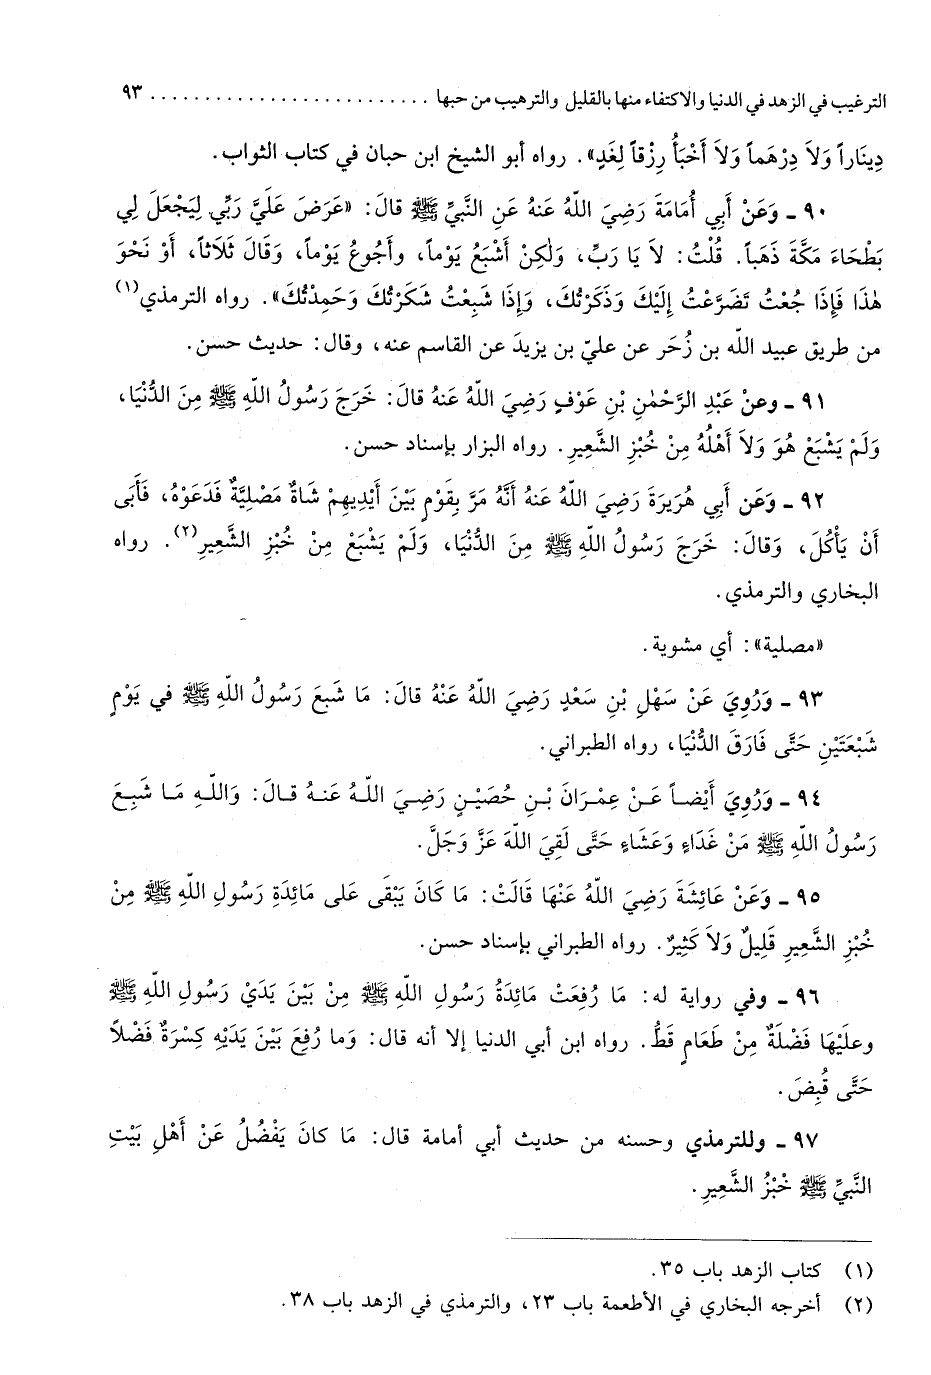 الترغيب في الزهد في الدنيا والاكتفاء منها بالقليل والترهيب من حبها .......................... ٩٣
دِينَاراً وَلاَ دِرْهَماً وَلاَ أَخْبَأُ رِزْقاً لِغَدٍ». رواه أبو الشيخ ابن حبان في كتاب الثواب.
٩٠ ـ وَعَنْ أَبِي أُمَامَةَ رَضِيَ اللَّهُ عَنهُ عَنِ النَّبِيِّ ﷺ قالَ: «عَرَضَ عَلَيَّ رَبِّي لِيَجْعَلَ لِي
بَطْحَاءَ مَكَّةَ ذَهَباً. قُلْتُ: لاَ يَا رَبِّ، وَلٰكِنْ أَشْبَعُ يَوْماً، وأَجُوعُ يَوْماً، وَقَالَ ثَلاَثاً، أَوْ نَحْوَ
هٰذَا فَإِذَا جُعْتُ تَضَرَّعْتُ إِلَيْكَ وَذَكَرْتُكَ، وَإِذَا شَبِعْتُ شَكَرْتُكَ وَحَمِدْتُكَ». رواه الترمذي(١)
من طريق عبيد الله بن زُحَر عن عليّ بن يزيدَ عن القاسم عنه، وقال: حديث حسن.
٩١ ـ وعنْ عَبْدِ الرَّحْمٰنِ بْنِ عَوْفٍ رَضِيَ اللَّهُ عَنهُ قالَ: خَرَجَ رَسُولُ اللَّهِ ﷺ مِنَ الدُّنْيَا،
وَلَمْ يَشْبَعْ هُوَ وَلاَ أَهْلُهُ مِنْ خُبْزِ الشَّعِيرِ. رواه البزار بإسناد حسن.
٩٢ ـ وَعَن أَبِي هُرَيرَةَ رَضِيَ اللَّهُ عَنهُ أَنَّهُ مَرَّ بِقَوْمٍ بَيْنَ أَيْدِيهِمْ شَاةٌ مَصْلِيَّةٌ فَدَعَوْهُ، فَأَبَى
أَنْ يَأْكُلَ، وَقالَ: خَرَجَ رَسُولُ اللَّهِ ﷺ مِنَ الدُّنْيَا، وَلَمْ يَشْبَعْ مِنْ خُبْزِ الشَّعِيرِ(٢). رواه
البخاري والترمذي.
«مصلية»: أي مشوية.
٩٣ ـ وَرُوِيَ عَنْ سَهْلِ بْنِ سَعْدٍ رَضِيَ اللَّهُ عَنْهُ قالَ: مَا شَبِعَ رَسُولُ اللَّهِ ﷺ في يَوْمٍ
شَبْعَتَيْنِ حَتَّى فَارَقَ الدُّنْيَا، رواه الطبراني.
٩٤ ـ وَرُوِيَ أَيْضاً عَنْ عِمْرَانَ بْنِ حُصَيْنٍ رَضِيَ اللَّهُ عَنهُ قالَ: وَاللَّهِ مَا شَبِعَ
رَسُولُ اللَّهِ ﷺ مَنْ غَدَاءٍ وَعَشَاءٍ حَتَّى لَقِيَ اللَّهَ عَزَّ وَجَلَّ.
٩٥ ـ وَعَنْ عَائِشَةَ رَضِيَ اللَّهُ عَنْهَا قَالَتْ: مَا كَانَ يَبْقَى عَلى مَائِدَةِ رَسُولِ اللَّهِ ﷺ مِنْ
خُبْزِ الشَّعِيرِ قَلِيلٌ وَلاَ كَثِيرٌ. رواه الطبراني بإسناد حسن.
٩٦ ـ وفي رواية له: مَا رُفِعَتْ مَائِدَةُ رَسُولِ اللَّهِ ﷺ مِنْ بَيْنَ يَدَيْ رَسُولِ اللَّهِ ﷺ
وعلَيْهَا فَضْلَةٌ مِنْ طَعَامٍ قَطُّ. رواه ابن أبي الدنيا إلا أنه قال: وَما رُفِعَ بَيْنَ يَدَيْهِ كِسْرَةٌ فَضْلاً
حَتَّى قُبِضَ.
٩٧ ـ وللترمذي وحسنه من حديث أبي أمامة قال: مَا كانَ يَفْضُلُ عَنْ أَهْلِ بَيْتِ
النَّبِيِّ ﷺ خُبْزُ الشَّعِيرِ.
(١) كتاب الزهد باب ٣٥.
(٢) أخرجه البخاري في الأطعمة باب ٢٣، والترمذي في الزهد باب ٣٨.